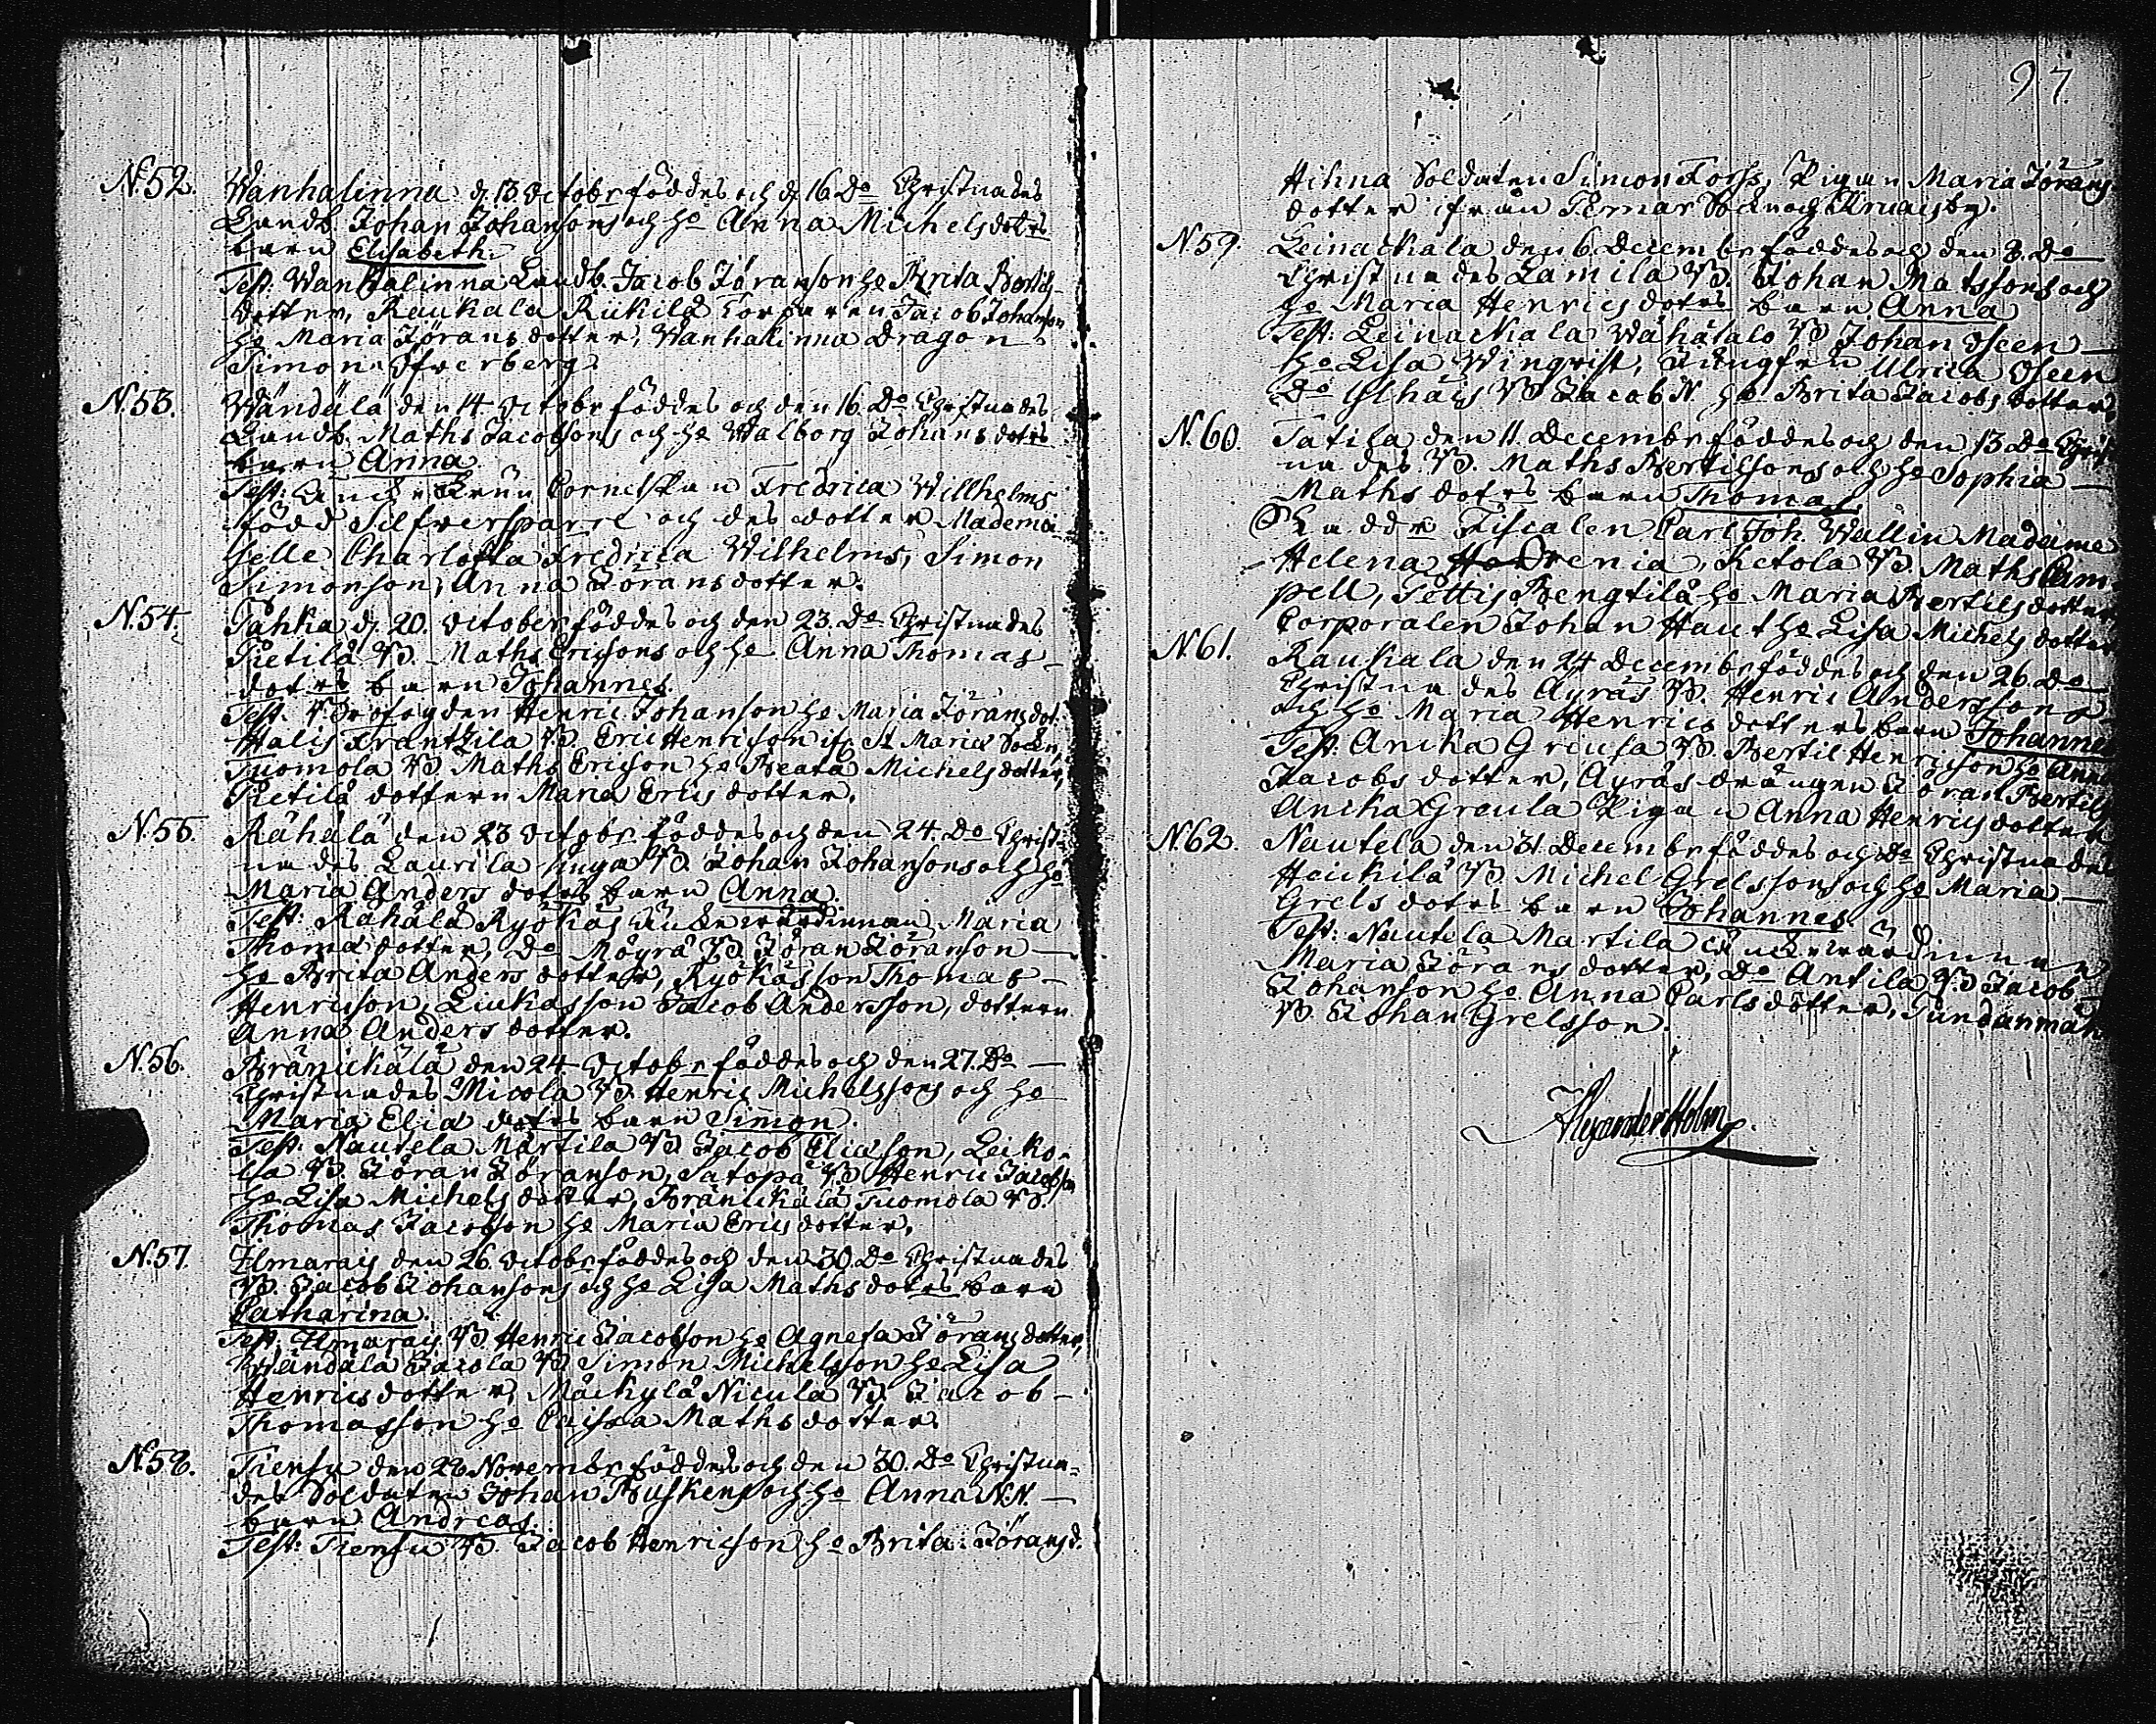 N.52. Wanhalinna d. 13 Octobr föddes och d. 16 Do Christnades
Landb. Johan Johansons och ho Anna Michelsdotrs
barn Elisabeth.
Test: Wanhalinna Landb. Jacob Jöranson ho Brita Bertils-
dotter, Raukala Rükilä Torparen Jacob Johanson
ho Maria Jöransdotter, Wanhalinna Dragon
Simon Öfverberg.
N.53. Wändälä den 14 Octobr föddes och den 16 Do Christnades
Landb. Maths Jacobsons och ho Walborg Johans dotrs
barn Anna.
Test: Cornetskan Fredrica Willhelms
född Silfversparre och des dotter Mademoi-
selle Charlotta Fredrica Wilhelms, Simon
Simonson, Anna Jöransdotter.
N.54. Tahka d. 20. October föddes och den 23. Do Christnades
Pietilä B. Maths Ericsons och ho Anna Thomas
dotrs barn Johannes.
Test. Brofogden Henric Johanson ho Maria Jöransdot.
Halis Frantzila B. Eric Henricson ifr. St Mariæ Sockn,
Tuomola B Maths Ericson ho Beata Michelsdotter,
Pietilä dottern Maria Ericsdotter.
N.55. Rähälä den 23 Octobr föddes och den 24. Do Christ-
nades Laurila unga B. Johan Johansons och ho
Maria Anders dotrs barn Anna.
Test: Rähälä Ryökäs Maria
Thomædotter, Do Möyrä B Jöran Jöranson
ho Brita Andersdotter, Ryökäs son Thomas
Henricson, Liukas son Jacob Andersson, dottern
Anna Andersdotter.
N.56. Bränickälä den 24 Octobr föddes och den 27. Do
Christnades Micola B. Henric Michelssons och ho
Maria Eliæ dotrs barn Simon.
Test. Nautela Märtila B. Jacob Eliæson, Leiko-
la B. Jöran Jöranson, Satopä B. Henric Jacobson
ho Lisa Michelsdotter, Bränickälä Tuomola B.
Thomas Jacobson ho Maria Ericsdotter.
N.57. Ilmarais den 26. Octobr föddes och den 30 Do Christnades
B. Jacob Johansons och ho Lisa Maths dotrs barn
Catharina.
Test. Ilmarais B. Henric Jacobson ho Agneta Jöransdotter,
Wändälä Jacola B. Simon Michelsson ho Lisa
Henricsdotter, Mäckylä Nicula B. Jacob
Thomasson ho Caisa Mathsdotter.
N.58. Tiensu den 28 Novembr föddes och den 30. Do Christna-
des Soldaten Johan Buskens och ho Anna N.N.
barn Andreas.
Test: Tiensu B. Jacob Henricson ho Brita Jöransd.
97.
Hihna Soldaten Simon Forss, Pigan Maria Jörans
dotter ifrån Pemar Sockn och
N.59. Leinackala den 6. Decembr föddes och den 8. Do
Christnades Lamila B. Johan Matssons och
ho Maria Henrics dotrs barn Anna
Test: Leinackala Wähätalo B Johan Oseen
ho Lisa Winqvist, Jungfru Ulrica Oseen
Do Ylhäis B Jacob N. ho Brita Jacobsdotter.
N.60. Tatila den 11. Decembr föddes och den 13 Do Christ-
nades B. Maths Bertilsons och ho Sophia
Maths dotrs barn Thomas.
Faddr Fiscalen Carl Joh. Wallin Madame
Helena Ketola B. Maths Cam-
pell, Tottis Bengtilä ho Maria Bertilsdotter
Corporalen Johan Haut ho Lisa Michelsdotter
N.61. Raukala den 24 Decembr föddes och den 26. Do
Christnades Äyräs B. Henric Anderssons
och ho Maria Henrics dotters barn Johannes
Test: Anika Greula B. Bertil Henricson ho Anna
Jacobsdotter, Äyräs drängen Jöran Bertils
Anika Greula Pigan Anna Henricsdotter
N.62. Nautela den 31. Decembr föddes och Do Christnades
Heickilä B. Michel Grelssons och ho Maria
Grels dotrs barn Johannes.
Test: Nautela Martila
Maria Jöransdotter, Do Antila B. Jacob
Johanson ho Anna Carlsdotter,
B Johan Grelsson.
Alexander Holm